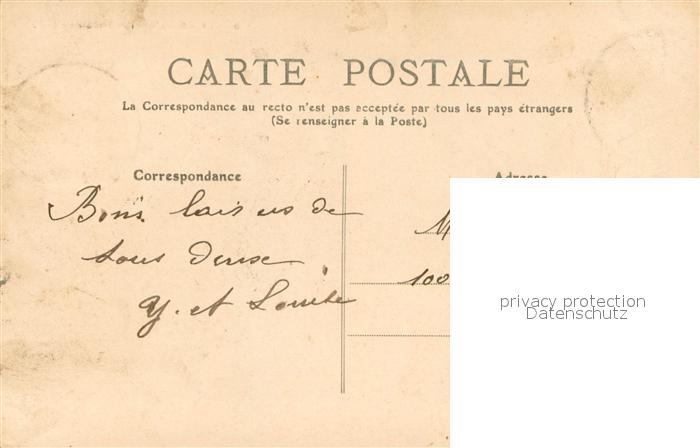 CARTE POSTALE
La Correspondance au recto n'est pas acceptée par tous les pays étrangers
(Se renseigner à la Poste)
Correspondance
Adresse
Bons de
M
tous deux
100
Y. et Louise
privacy protection
Datenschutz